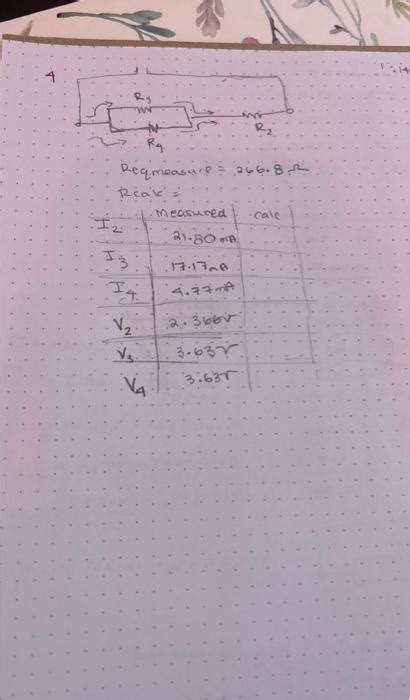 4
R3
R4
R2
Req measure = 266.8 Ω
Rcalc =
measured calc
I2 21.80 mA
I3 17.17 mA
I4 4.77 mA
V2 2.366 V
V3 3.63 V
V4 3.63 V